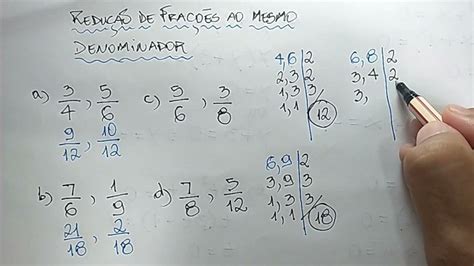 REDUÇÃO DE FRAÇÕES AO MESMO
DENOMINADOR
a) 3/4, 5/6
9/12, 10/12
c) 5/6, 3/8
b) 7/6, 1/9
21/18, 2/18
d) 7/8, 5/12
4,6|2
2,3|2
1,3|3
1,1| 12
6,8|2
3,4|2
3,
6,9|2
3,9|3
1,3|3
1,1| 18